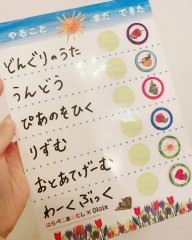 やること まだ できた
どんぐりのうた
うんどう
ぴあのをひく
りずむ
おとあてげーむ
わーくぶっく
はらぺこあおむし × Oisix